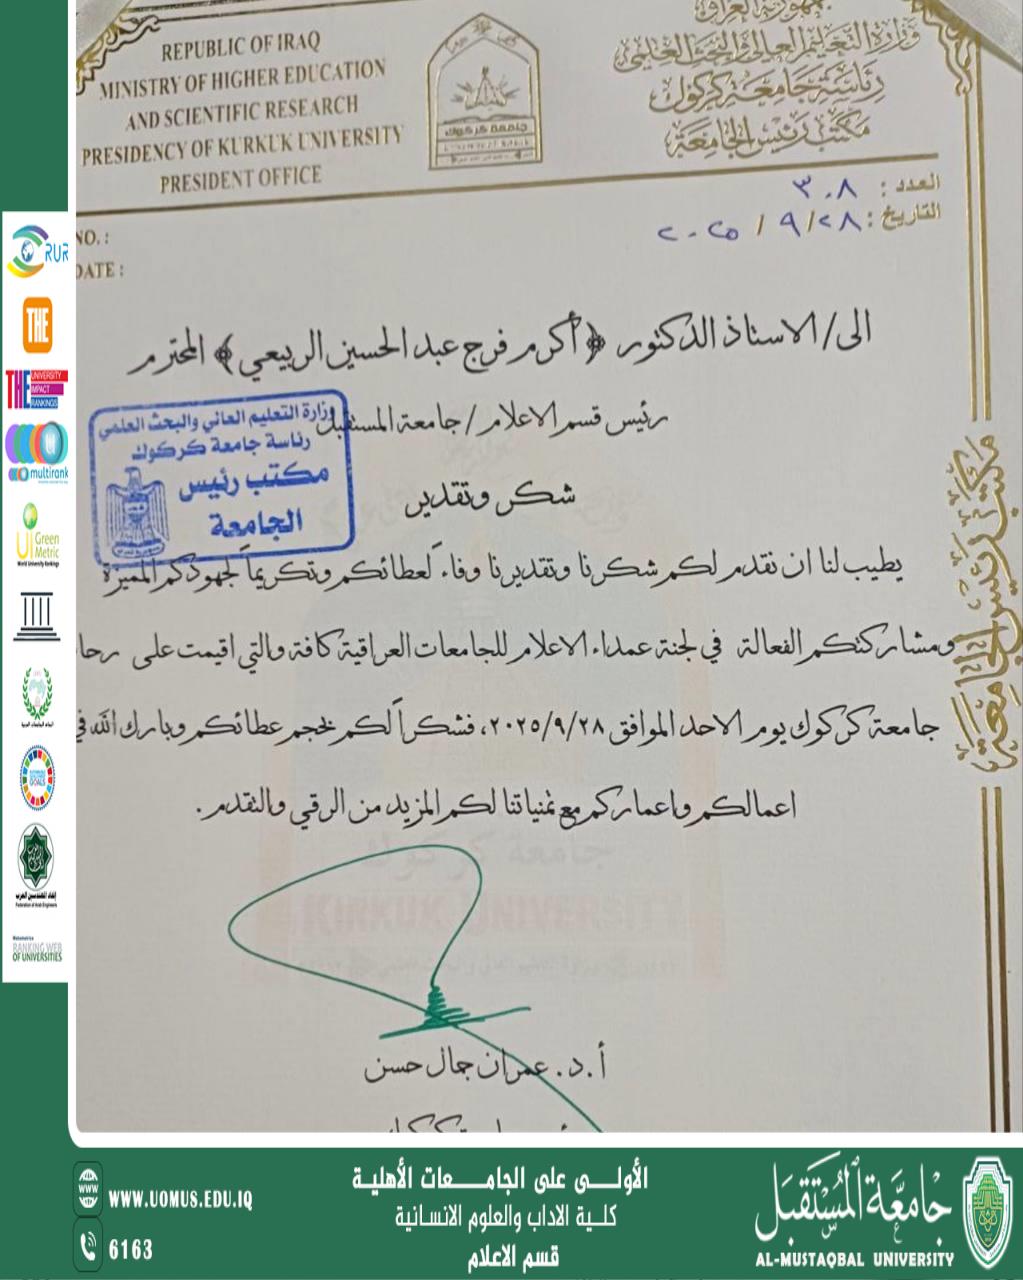 جمهورية العراق
وزارة التعليم العالي والبحث العلمي
رئاسة جامعة كركوك
مكتب رئيس الجامعة
REPUBLIC OF IRAQ
MINISTRY OF HIGHER EDUCATION
AND SCIENTIFIC RESEARCH
PRESIDENCY OF KURKUK UNIVERSITY
PRESIDENT OFFICE
جامعة كركوك
العدد : ٣٠٨
التاريخ : ٢٨ / ٩ / ٢٠٢٥
NO. :
DATE :
الى/ الاستاذ الدكتور ﴿أكرم فرج عبد الحسين الربيعي﴾ المحترم
رئيس قسم الاعلام / جامعة المستقبل
وزارة التعليم العالي والبحث العلمي
رئاسة جامعة كركوك
مكتب رئيس
الجامعة
شكر وتقدير
يطيب لنا ان نقدم لكم شكرنا وتقديرنا وفاءً لعطائكم وتكريماً لجهودكم المميزة
ومشاركتكم الفعالة في لجنة عمداء الاعلام للجامعات العراقية كافة والتي اقيمت على رحا
جامعة كركوك يوم الاحد الموافق ٢٠٢٥/٩/٢٨، فشكراً لكم بحجم عطائكم وبارك الله في
اعمالكم واعماركم مع تمنياتنا لكم المزيد من الرقي والتقدم.
جامعة كركوك
KIRKUK UNIVERSITY
أ.د. عمران جمال حسن
مكتب رئيس الجامعة
RUR
THE
THE UNIVERSITY IMPACT RANKINGS
multirank
UI Green Metric
World University Rankings
SUSTAINABLE DEVELOPMENT GOALS
اتحاد المهندسين العرب
Federation of Arab Engineers
Webometrics
RANKING WEB
OF UNIVERSITIES
WWW.UOMUS.EDU.IQ
6163
الأولى على الجامعات الأهلية
كلية الاداب والعلوم الانسانية
قسم الاعلام
جامعة المستقبل
AL-MUSTAQBAL UNIVERSITY